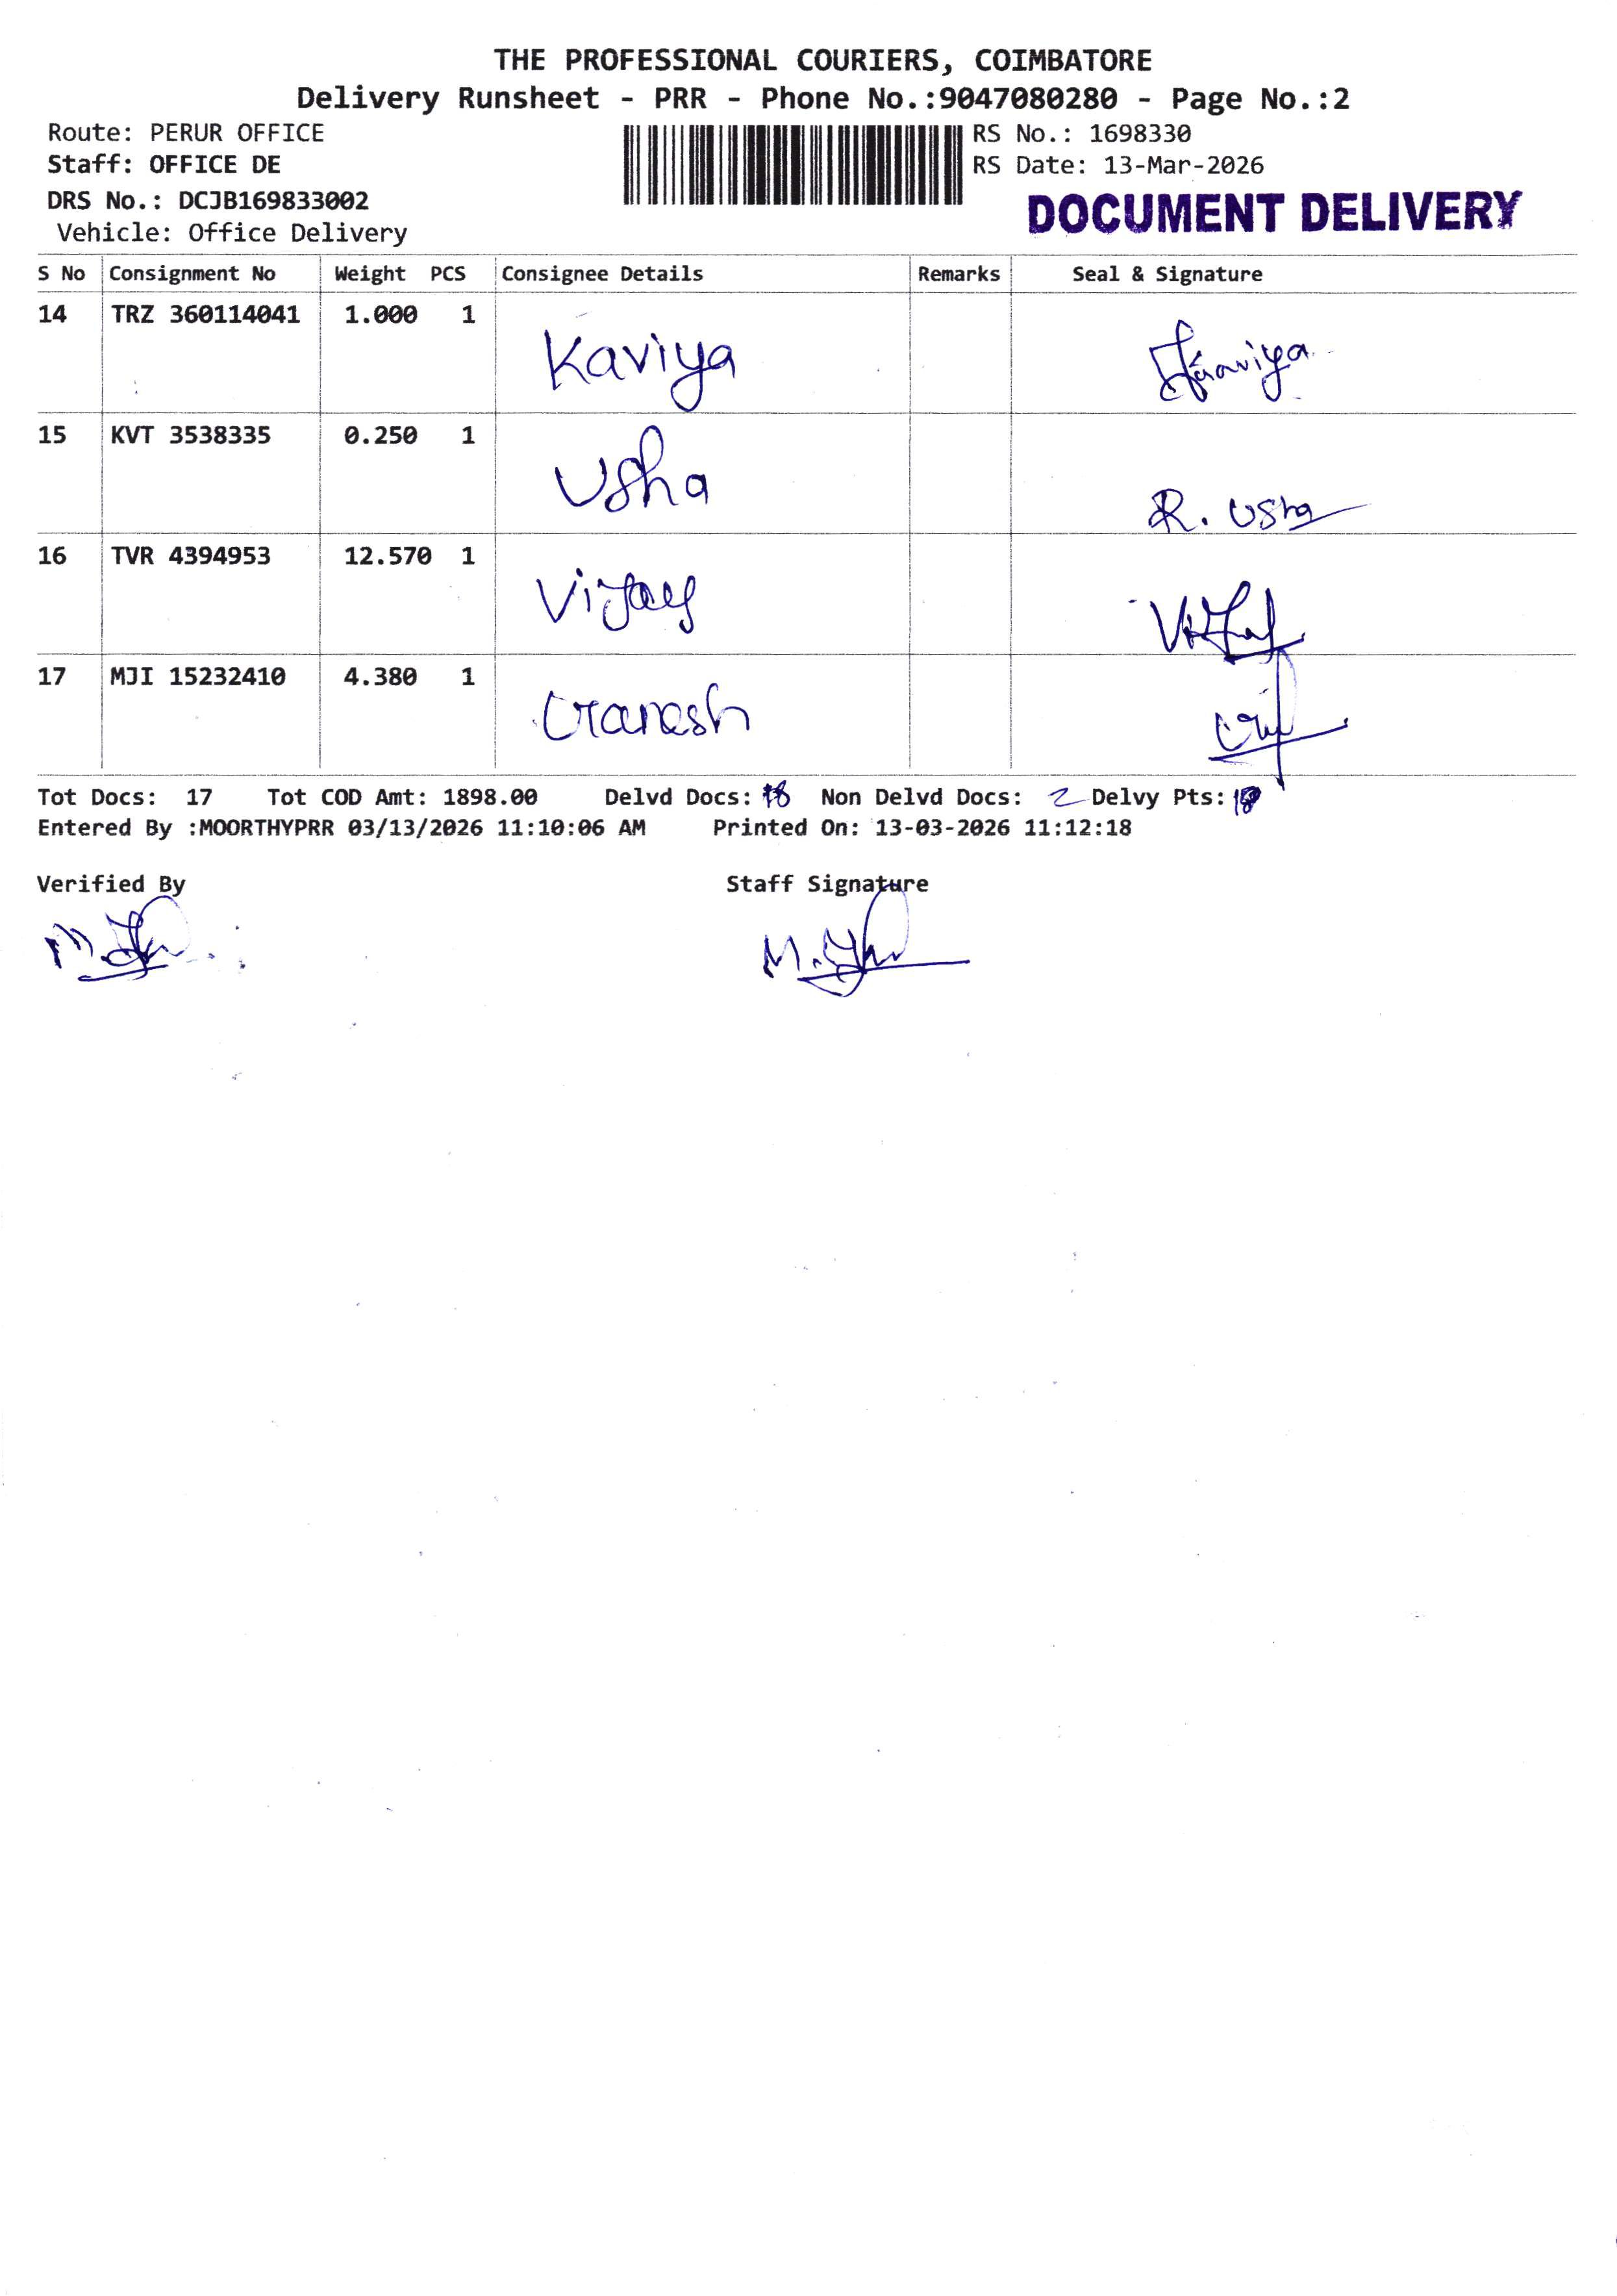 THE PROFESSIONAL COURIERS, COIMBATORE
Delivery Runsheet - PRR - Phone No.:9047080280 - Page No.:2
Route: PERUR OFFICE
RS No.: 1698330
Staff: OFFICE DE
RS Date: 13-Mar-2026
DRS No.: DCJB169833002
DOCUMENT DELIVERY
Vehicle: Office Delivery
S No Consignment No Weight PCS Consignee Details Remarks Seal & Signature
14 TRZ 360114041 1.000 1
Kaviya
Kaaviya
15 KVT 3538335 0.250 1
Usha
R. Usha
16 TVR 4394953 12.570 1
Vijay
17 MJI 15232410 4.380 1
Tot Docs: 17 Tot COD Amt: 1898.00 Delvd Docs: Non Delvd Docs: 2 Delvy Pts:
Entered By :MOORTHYPRR 03/13/2026 11:10:06 AM Printed On: 13-03-2026 11:12:18
Verified By Staff Signature